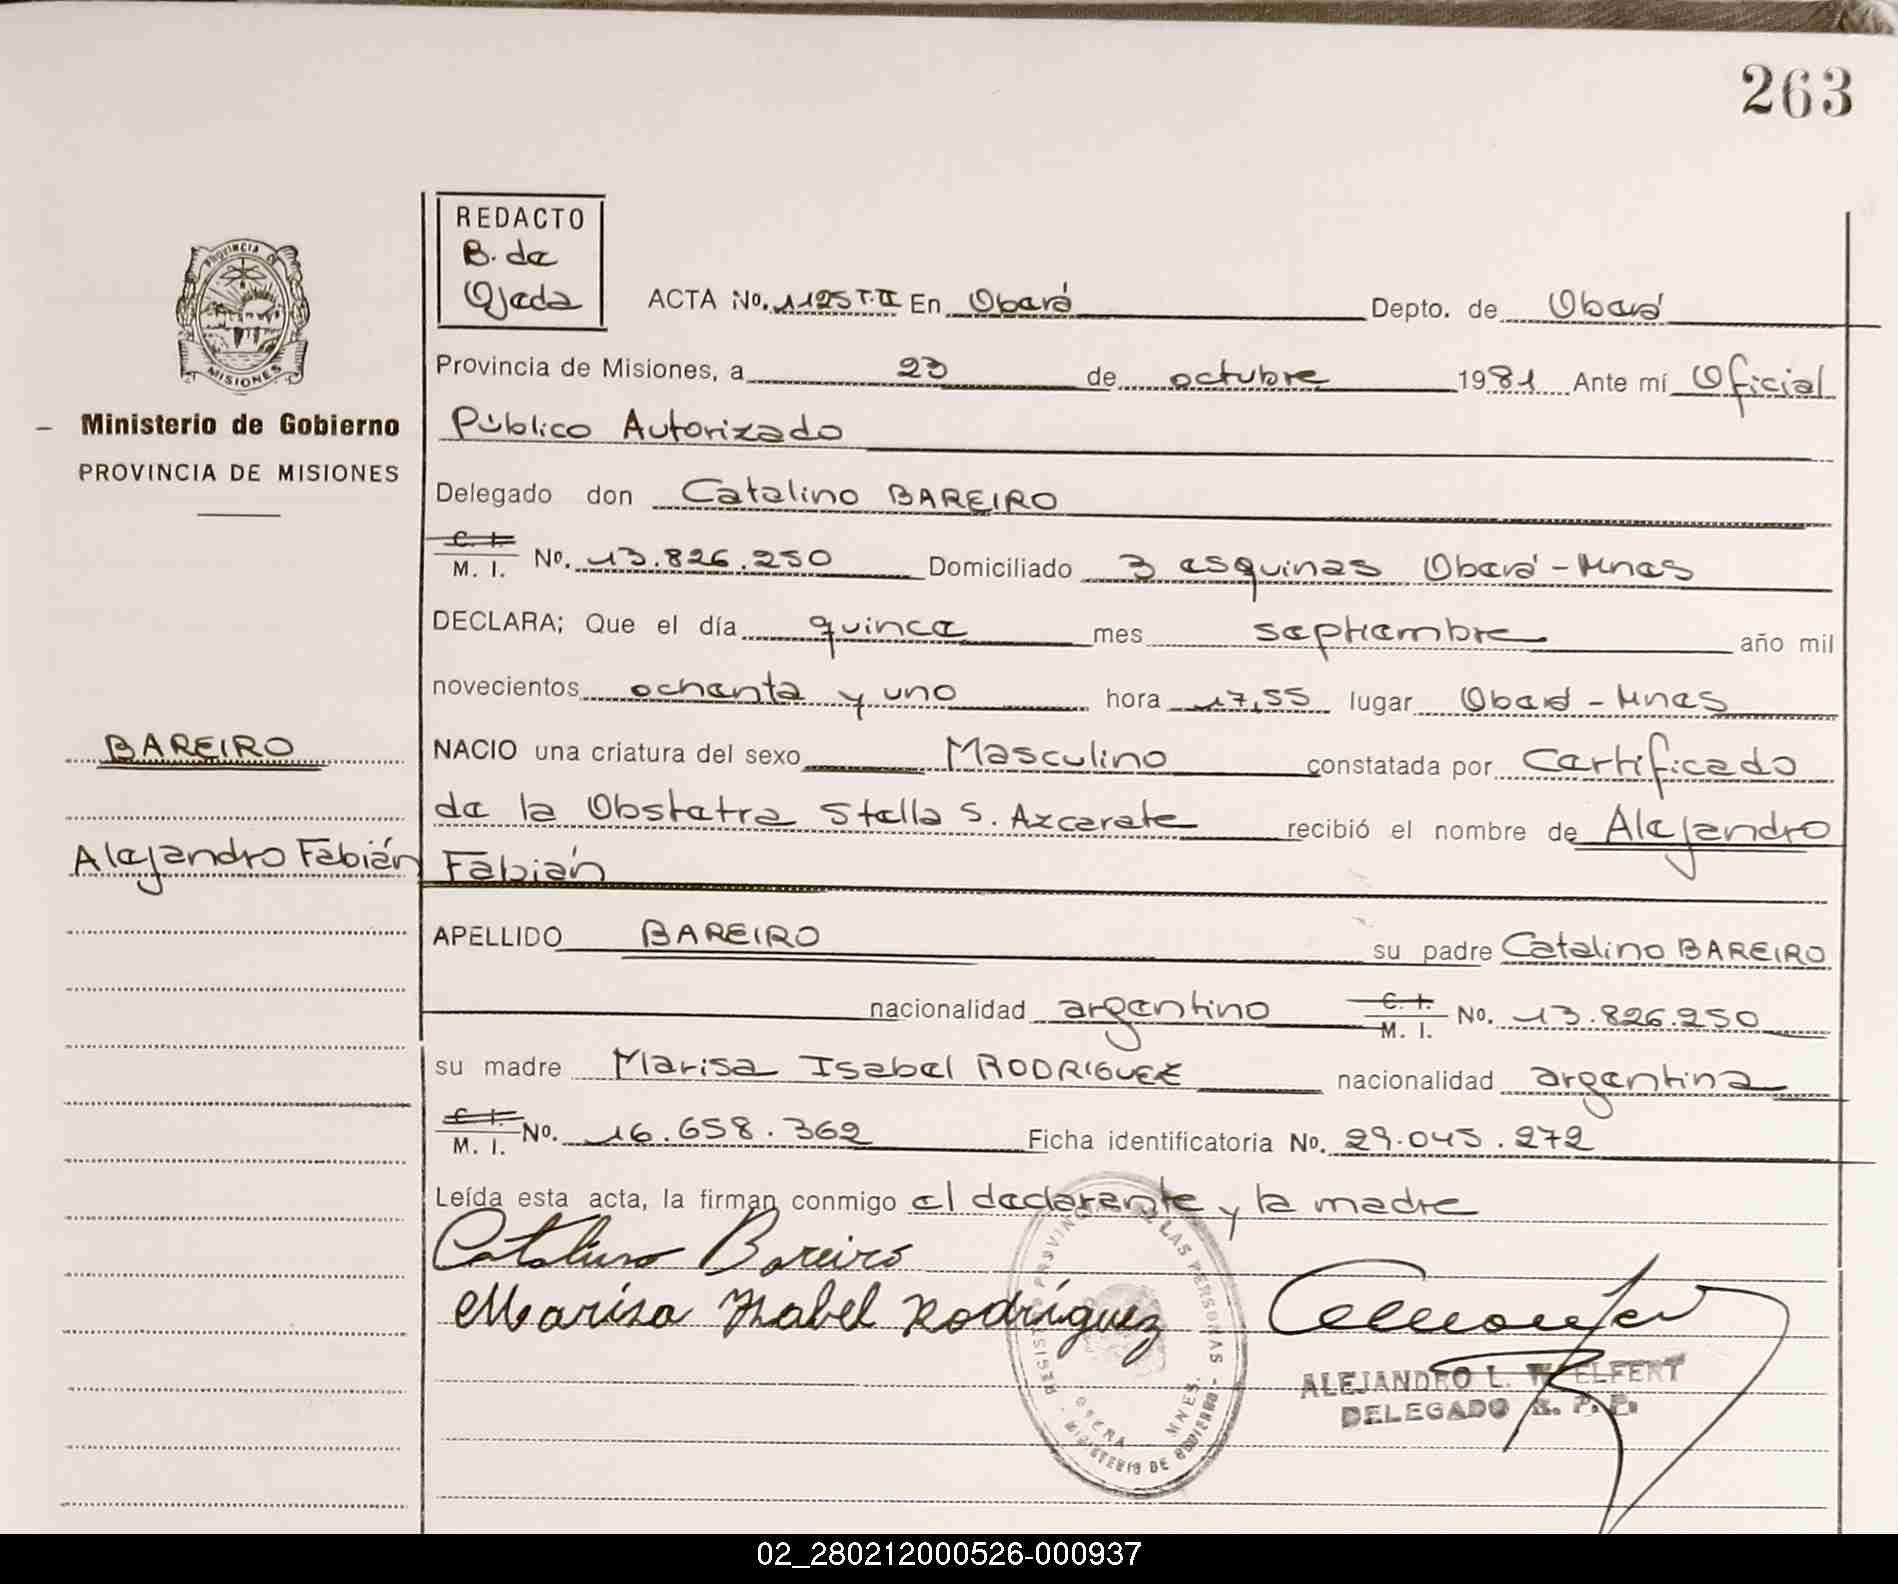 263
REDACTO
B. de
Ojeda
ACTA No. 1125 T.II En Oberá Depto. de Oberá
Provincia de Misiones, a 23 de octubre 1981 Ante mí Oficial
Público Autorizado
Delegado don Catalino BAREIRO
C. I. M. I. No. 13.826.250 Domiciliado 3 esquinas Oberá - Mnes
DECLARA; Que el día quince mes septiembre año mil
novecientos ochenta y uno hora 17,55 lugar Oberá - Mnes
NACIO una criatura del sexo Masculino constatada por Certificado
de la Obstetra Stella S. Azcarate recibió el nombre de Alejandro
Fabián
APELLIDO BAREIRO su padre Catalino BAREIRO
nacionalidad argentino C. I. M. I. No. 13.826.250
su madre Marisa Isabel RODRIGUEZ nacionalidad argentina
C. I. M. I. No. 16.658.362 Ficha identificatoria No. 29.045.272
Leída esta acta, la firman conmigo el declarante y la madre
Catalino Bareiro
Marisa Isabel Rodríguez
ALEJANDRO L. WELFERT
DELEGADO R. P. P.
PROVINCIA DE
MISIONES
Ministerio de Gobierno
PROVINCIA DE MISIONES
BAREIRO
Alejandro Fabián
DE LAS PERSONAS
OBERA MNES.
MINISTERIO DE GOBIERNO
02_280212000526-000937